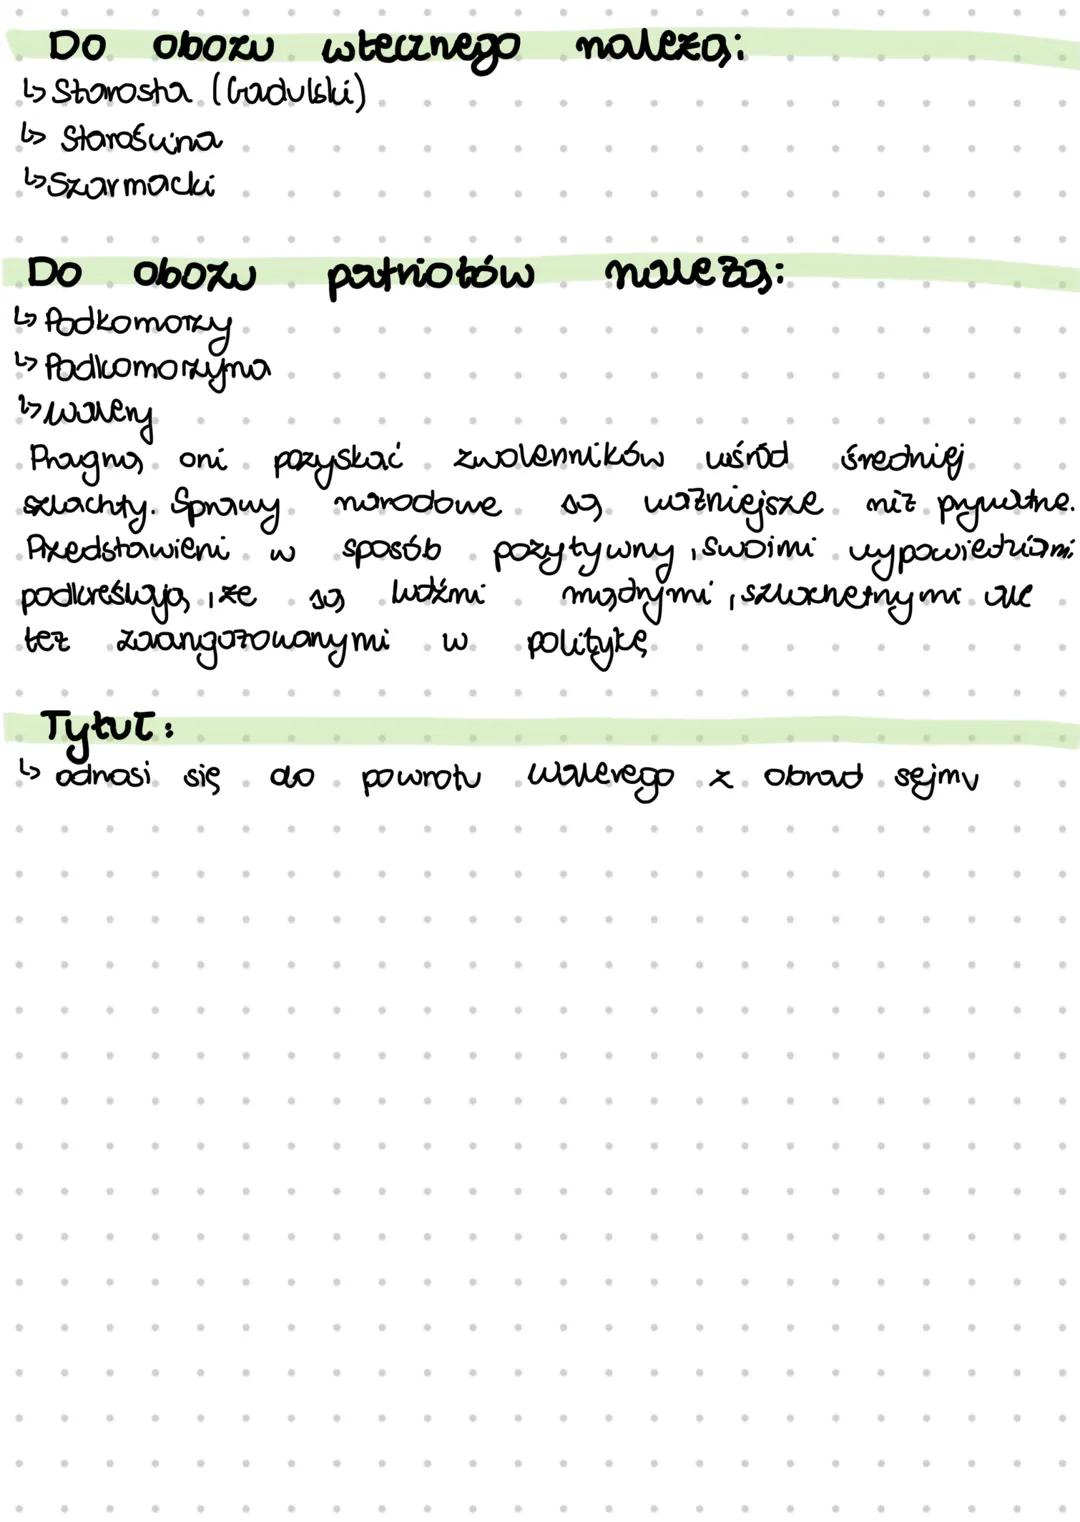 Do obozu wtecznego należą:
↳ Starosta (Gadulski)
↳ Starościna
↳ Szarmacki
Do obozu patriotów należą:
↳ Podkomorzy
↳ Podkomorzyna
↳ Walery
Pragną oni pozyskać zwolenników wśród średniej
szlachty. Sprawy narodowe są ważniejsze niż prywatne.
Przedstawieni w sposób pozytywny, swoimi wypowiedziami
podkreślają, że są ludźmi mądrymi, szlachetnymi ale
też zaangażowanymi w politykę
Tytuł:
↳ odnosi się do powrotu Walerego z obrad sejmu